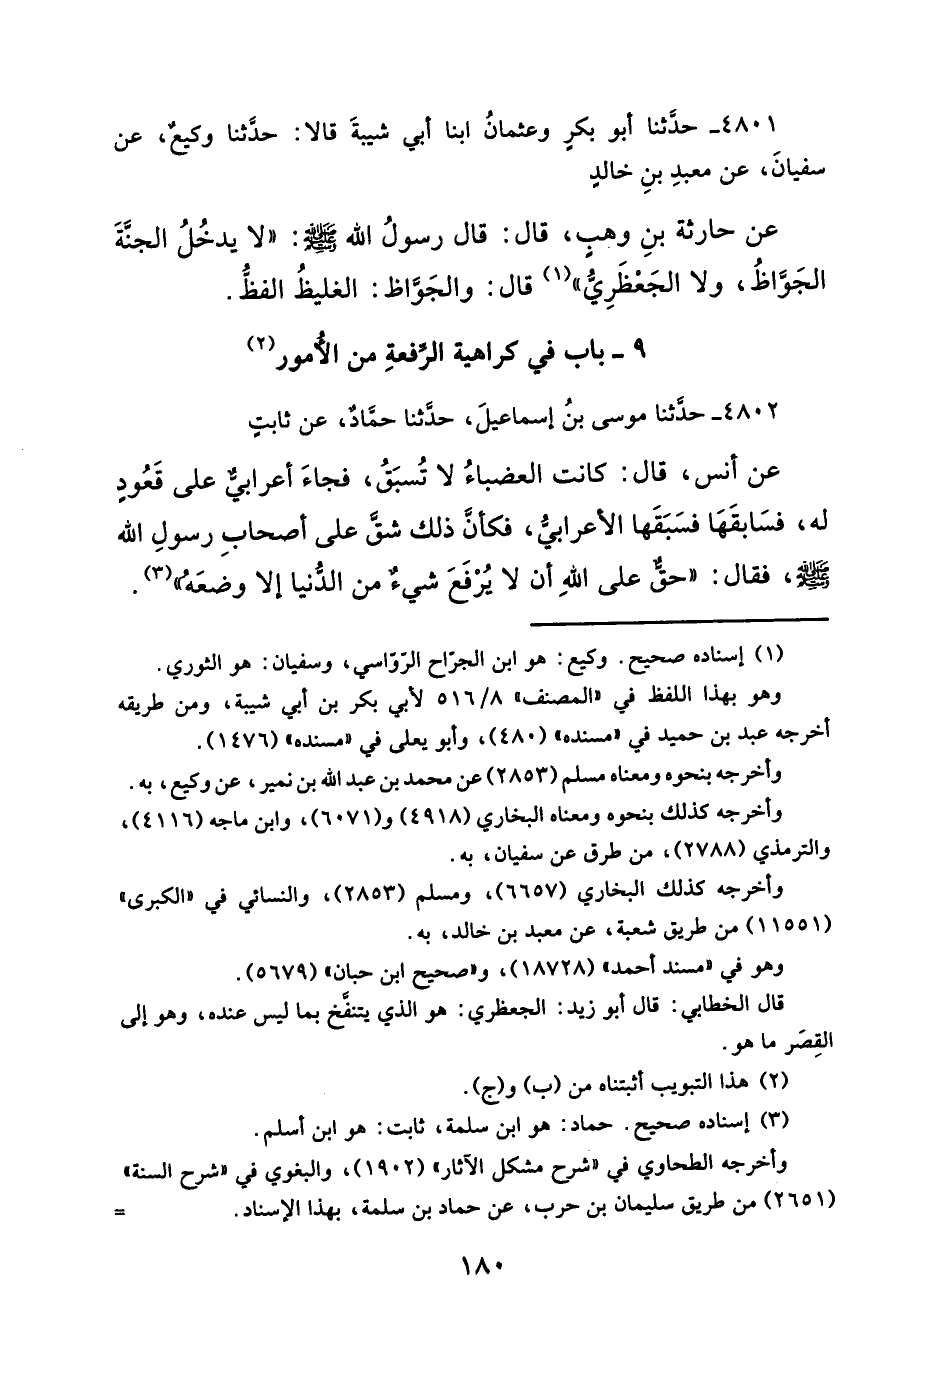 ٤٨٠١ـ حدَّثنا أبو بكرٍ وعثمانُ ابنا أبي شيبةَ قالا: حدَّثنا وكيعٌ، عن
سفيانَ، عن معبدِ بنِ خالدٍ
عن حارثة بنِ وهبٍ، قال: قال رسولُ الله ﷺ: «لا يدخُلُ الجنَّةَ
الجَوَّاظُ، ولا الجَعْظَرِيُّ»(١) قال: والجَوَّاظ: الغليظُ الفظُّ.
٩ ـ باب في كراهية الرِّفعةِ من الأُمور(٢)
٤٨٠٢ـ حدَّثنا موسى بنُ إسماعيلَ، حدَّثنا حمَّادٌ، عن ثابتٍ
عن أنس، قال: كانت العضباءُ لا تُسبَقُ، فجاءَ أعرابيٌّ على قَعُودٍ
له، فسَابقَهَا فسَبَقَها الأعرابيُّ، فكأنَّ ذلك شقَّ على أصحابِ رسولِ الله
ﷺ، فقال: «حقٌّ على اللهِ أن لا يُرْفَعَ شيءٌ من الدُّنيا إلا وضعَهُ»(٣).
(١) إسناده صحيح. وكيع: هو ابن الجرّاح الرّؤاسي، وسفيان: هو الثوري.
وهو بهذا اللفظ في «المصنف» ٥١٦/٨ لأبي بكر بن أبي شيبة، ومن طريقه
أخرجه عبد بن حميد في «مسنده» (٤٨٠)، وأبو يعلى في «مسنده» (١٤٧٦).
وأخرجه بنحوه ومعناه مسلم (٢٨٥٣) عن محمد بن عبد الله بن نمير، عن وكيع، به.
وأخرجه كذلك بنحوه ومعناه البخاري (٤٩١٨) و(٦٠٧١)، وابن ماجه (٤١١٦)،
والترمذي (٢٧٨٨)، من طرق عن سفيان، به.
وأخرجه كذلك البخاري (٦٦٥٧)، ومسلم (٢٨٥٣)، والنسائي في «الكبرى»
(١١٥٥١) من طريق شعبة، عن معبد بن خالد، به.
وهو في «مسند أحمد» (١٨٧٢٨)، و«صحيح ابن حبان» (٥٦٧٩).
قال الخطابي: قال أبو زيد: الجعظري: هو الذي يتنفَّخ بما ليس عنده، وهو إلى
القِصَر ما هو.
(٢) هذا التبويب أثبتناه من (ب) و(ج).
(٣) إسناده صحيح. حماد: هو ابن سلمة، ثابت: هو ابن أسلم.
وأخرجه الطحاوي في «شرح مشكل الآثار» (١٩٠٢)، والبغوي في «شرح السنة»
(٢٦٥١) من طريق سليمان بن حرب، عن حماد بن سلمة، بهذا الإسناد. =
١٨٠